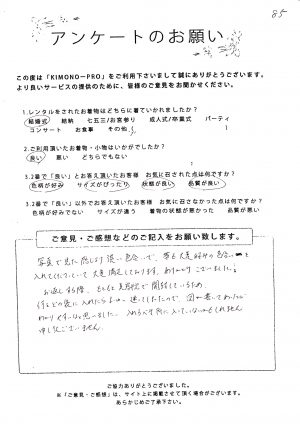 85
アンケートのお願い
この度は「KIMONO-PRO」をご利用下さいまして誠にありがとうございます。
より良いサービスの提供のために、皆様のご意見をお聞かせください。
1.レンタルをされたお着物はどちらに着ていかれましたか?
結婚式 結納 七五三/お宮参り 成人式/卒業式 パーティ
コンサート お食事 その他(
2.ご利用頂いたお着物・小物はいかがでしたか?
良い 悪い どちらでもない
3.2番で「良い」とお答え頂いたお客様 お気に召された点は何ですか?
色柄が好み サイズがぴったり 状態が良い 品質が良い
3.2番で「良い」以外でお答え頂いたお客様 お気に召さなかった点は何ですか?
色柄が好みでない サイズが違う 着物の状態が悪かった 品質が悪い
ご意見・ご感想などのご記入をお願い致します。
写真で見た感じより濃い色合いで、帯も大変好みの色合いを
入れてくださっていて大変満足しております。ありがとうございました。
お返しする際、もともと
申し訳ございません。
ご協力ありがとうございました。
※「ご意見・ご感想」は、サイト上に掲載させて頂く場合がございます。
あらかじめご了承下さい。